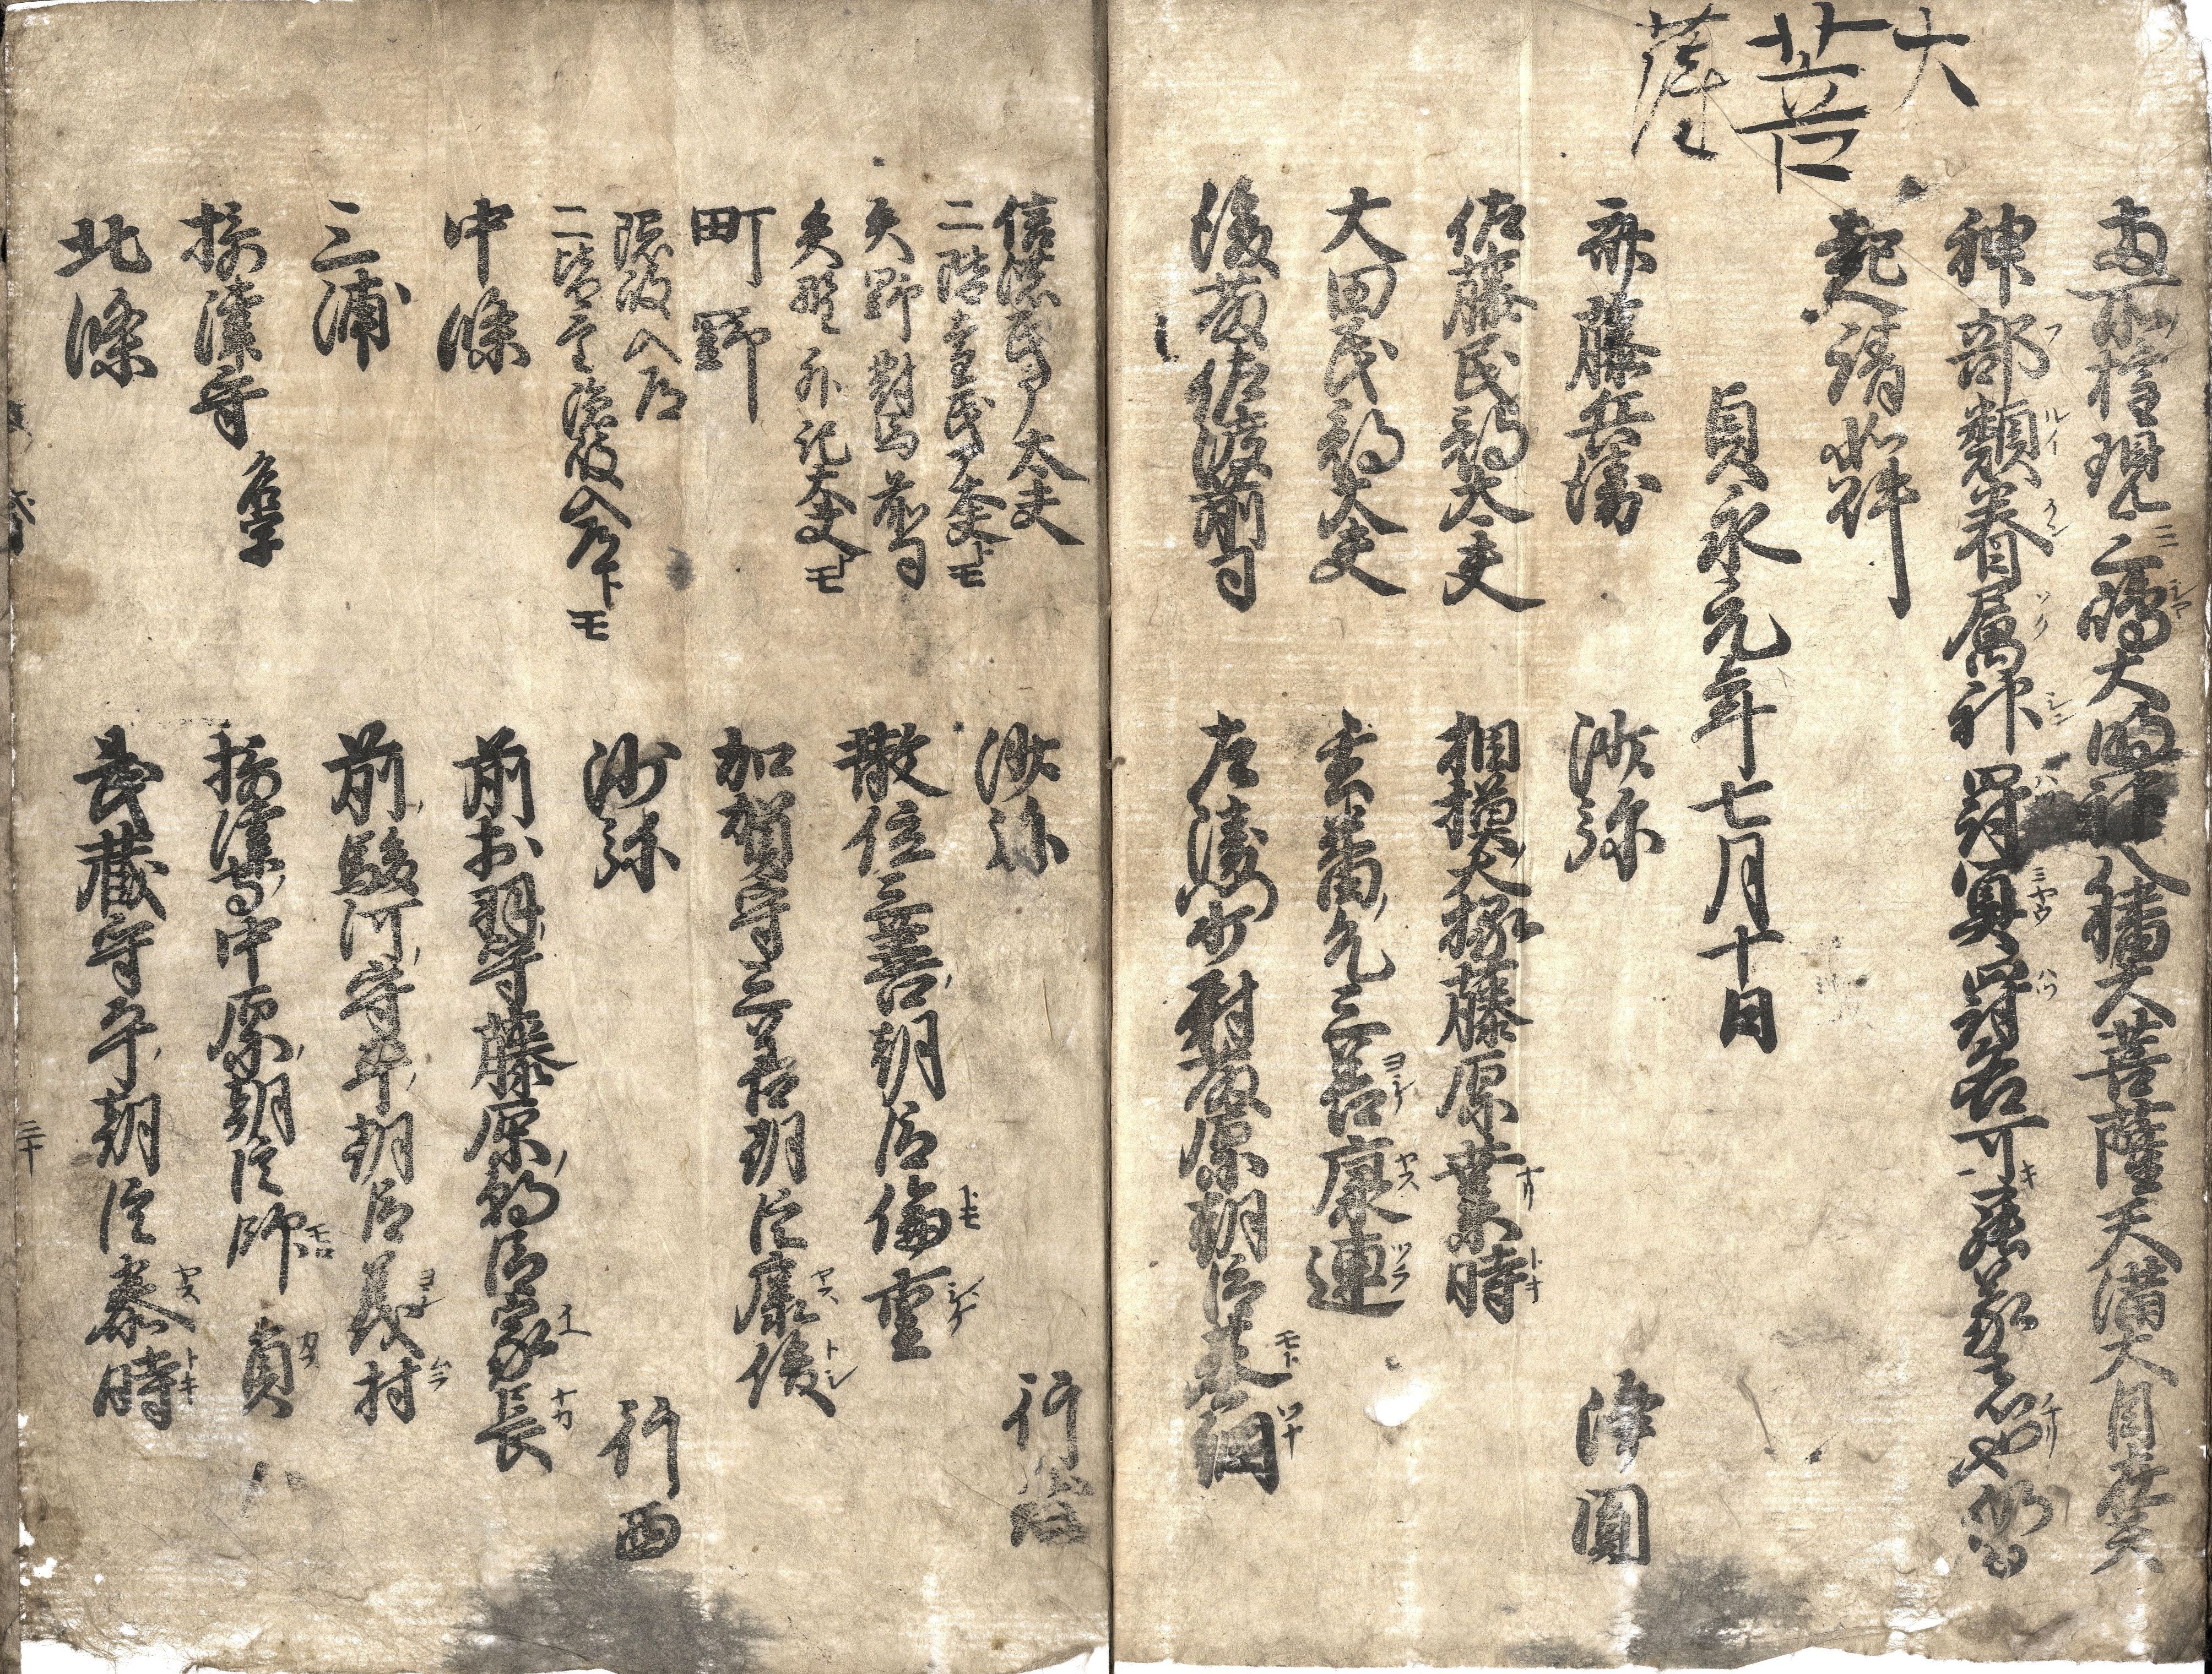 大
菩
薩
両所権現三嶋大明神八幡大菩薩天満大自在天
神部類眷属神罸冥罸各可蒙者也仍
起請如件
貞永元年七月十日
斎藤兵衛 沙弥 浄圓
佐藤民部大夫 相模大掾藤原業時
大田民部大夫 玄蕃允三善康連
後藤佐渡前司 左衛門少尉藤原朝臣基綱
信濃民部大夫 沙弥 行
二階堂民部大夫トモ
矢野対馬前司 散位三善朝臣倫重
矢野外記大夫トモ
町野 加賀守三善朝臣康俊
隠岐入道 沙弥 行西
二階堂隠岐入道トモ
中條 前出羽守藤原朝臣家長
三浦 前駿河守平朝臣義村
摂津守 摂津守中原朝臣師員
北條 武蔵守平朝臣泰時
三十